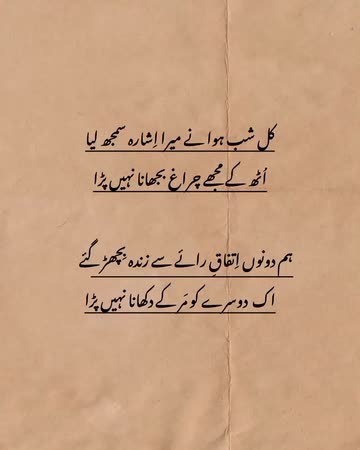 کل شب ہوا نے میرا اِشارہ سمجھ لیا
اُٹھ کے مجھے چراغ بجھانا نہیں پڑا
ہم دونوں اِتفاقِ رائے سے زندہ بِچھڑ گئے
اک دوسرے کو مَر کے دکھانا نہیں پڑا